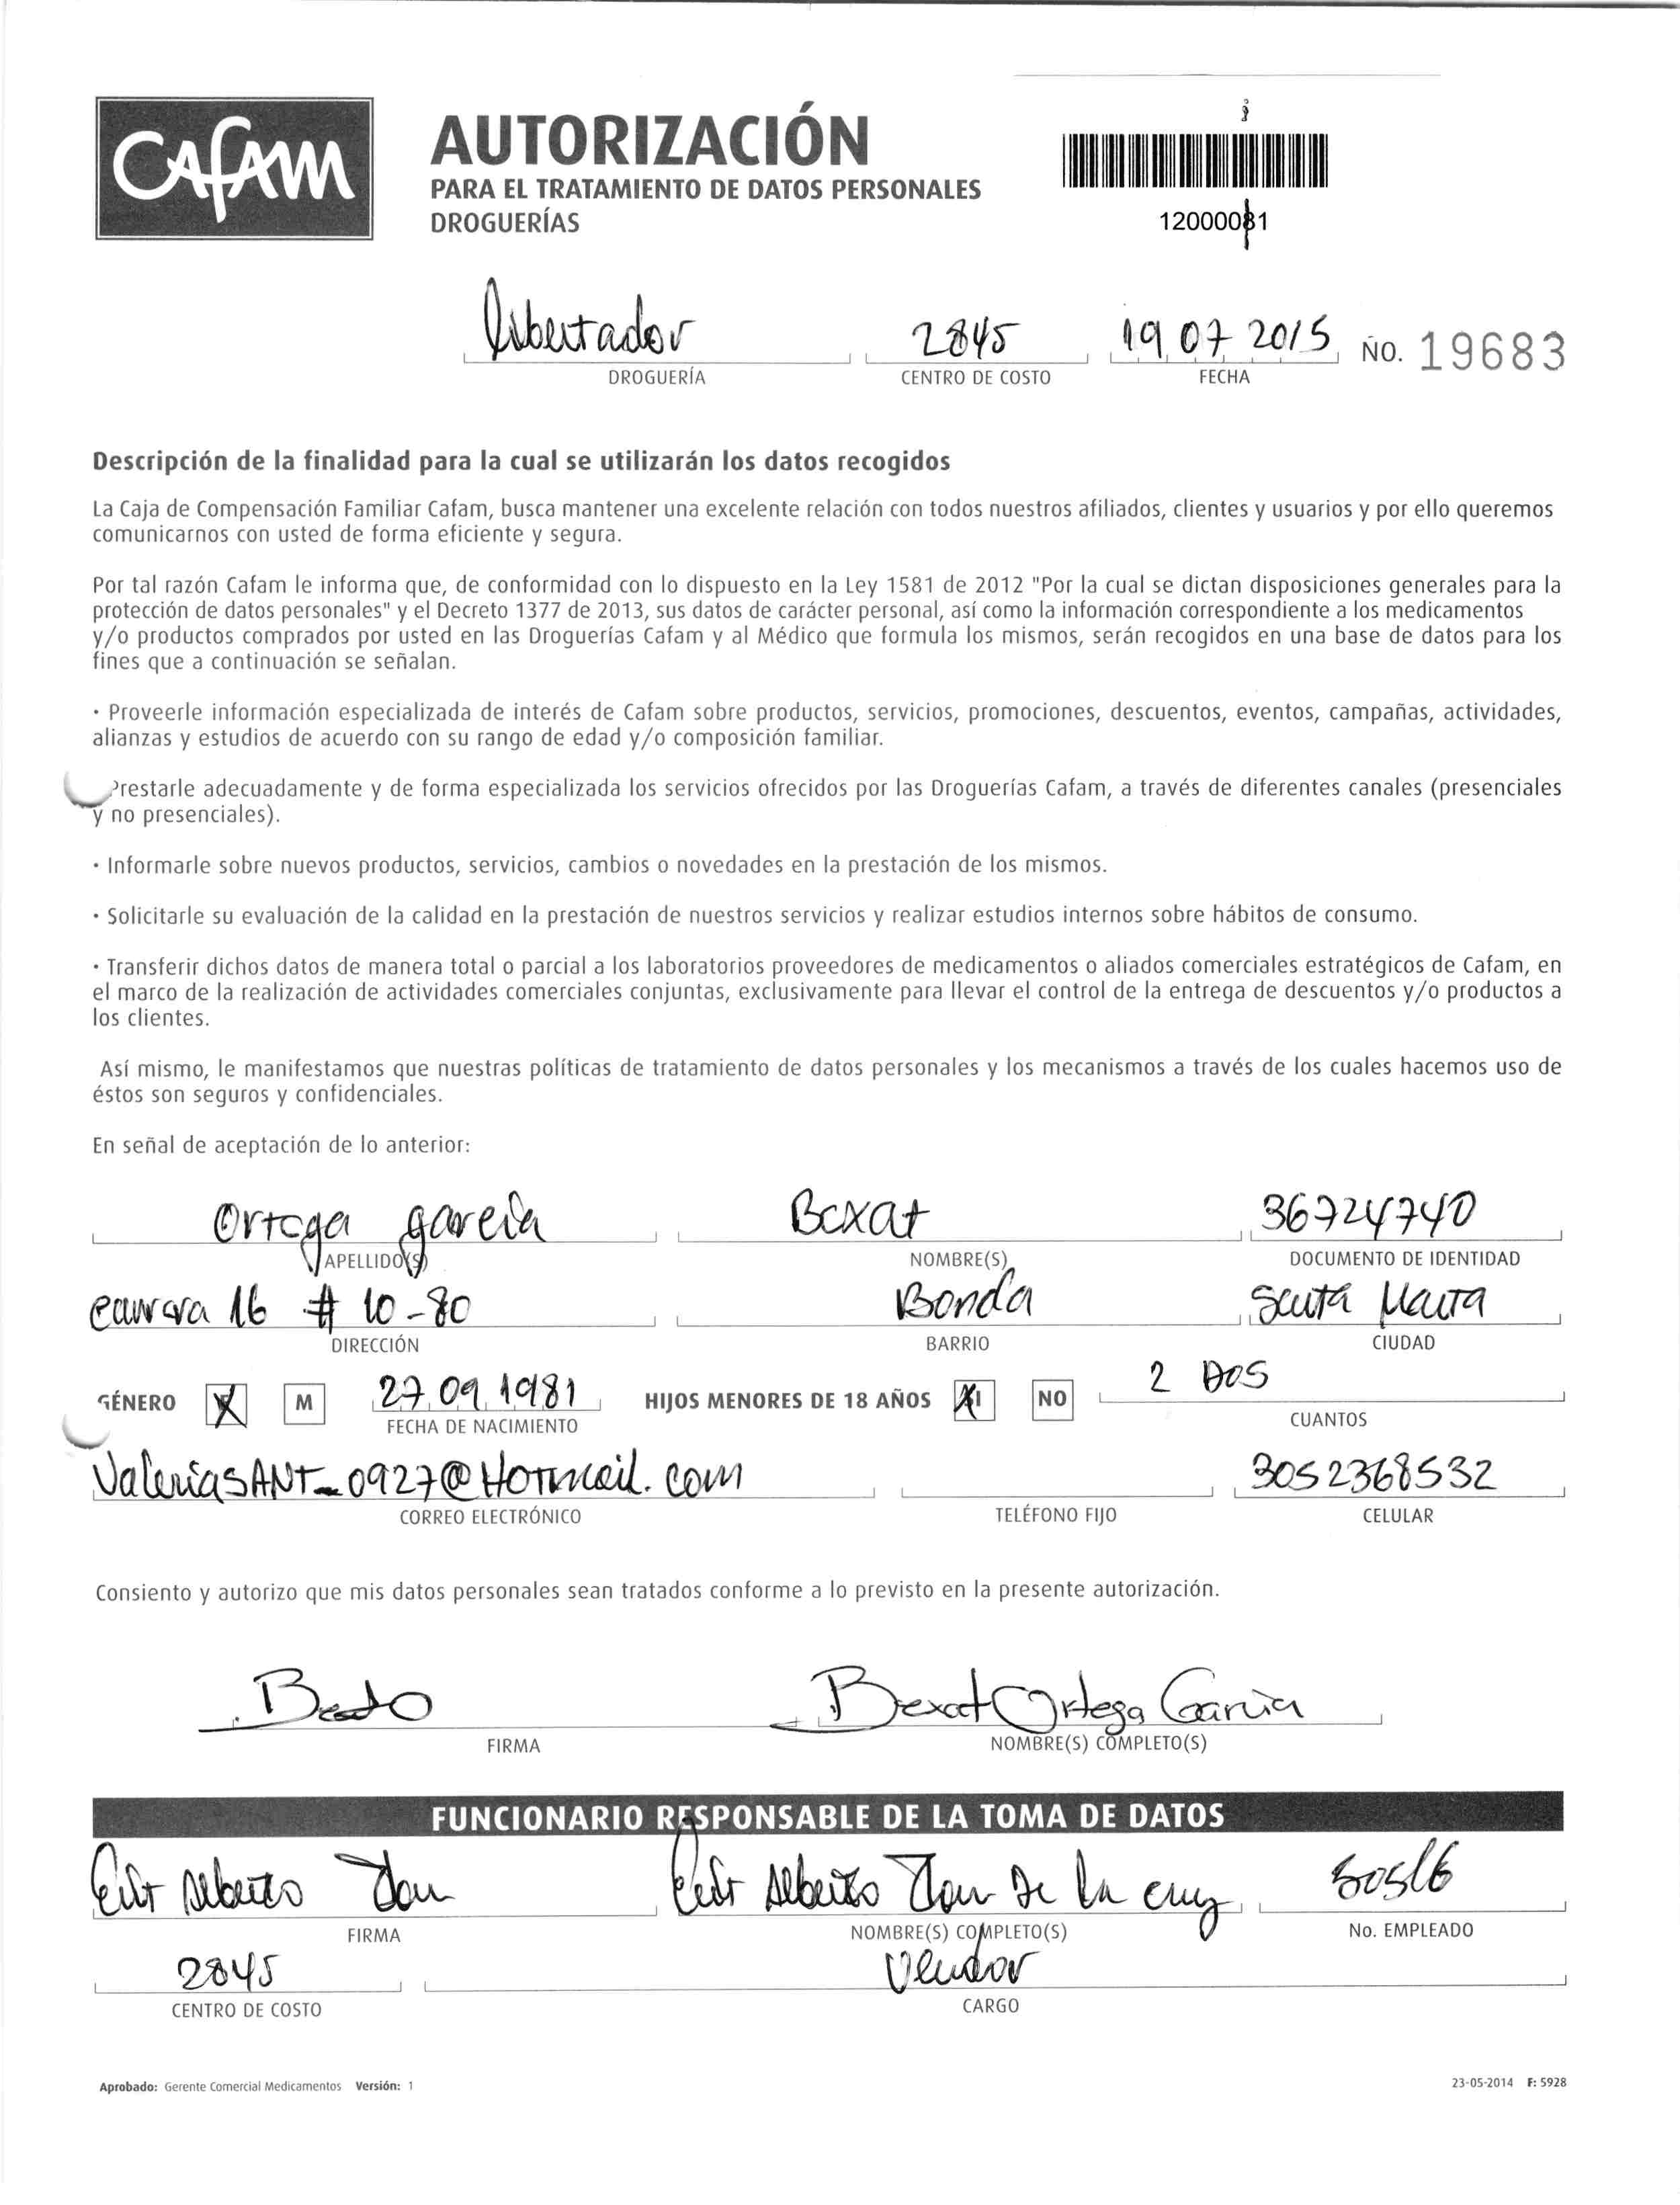 Cafam
AUTORIZACIÓN
PARA EL TRATAMIENTO DE DATOS PERSONALES
DROGUERÍAS
Libertador 2845 19 07 2015 No. 19683
DROGUERÍA CENTRO DE COSTO FECHA
Descripción de la finalidad para la cual se utilizarán los datos recogidos
La Caja de Compensación Familiar Cafam, busca mantener una excelente relación con todos nuestros afiliados, clientes y usuarios y por ello queremos
comunicarnos con usted de forma eficiente y segura.
Por tal razón Cafam le informa que, de conformidad con lo dispuesto en la Ley 1581 de 2012 "Por la cual se dictan disposiciones generales para la
protección de datos personales" y el Decreto 1377 de 2013, sus datos de carácter personal, así como la información correspondiente a los medicamentos
y/o productos comprados por usted en las Droguerías Cafam y al Médico que formula los mismos, serán recogidos en una base de datos para los
fines que a continuación se señalan.
· Proveerle información especializada de interés de Cafam sobre productos, servicios, promociones, descuentos, eventos, campañas, actividades,
alianzas y estudios de acuerdo con su rango de edad y/o composición familiar.
Prestarle adecuadamente y de forma especializada los servicios ofrecidos por las Droguerías Cafam, a través de diferentes canales (presenciales
y no presenciales).
· Informarle sobre nuevos productos, servicios, cambios o novedades en la prestación de los mismos.
· Solicitarle su evaluación de la calidad en la prestación de nuestros servicios y realizar estudios internos sobre hábitos de consumo.
· Transferir dichos datos de manera total o parcial a los laboratorios proveedores de medicamentos o aliados comerciales estratégicos de Cafam, en
el marco de la realización de actividades comerciales conjuntas, exclusivamente para llevar el control de la entrega de descuentos y/o productos a
los clientes.
Así mismo, le manifestamos que nuestras políticas de tratamiento de datos personales y los mecanismos a través de los cuales hacemos uso de
éstos son seguros y confidenciales.
En señal de aceptación de lo anterior:
Ortega garcia Bexat 36724740
APELLIDO(S) NOMBRE(S) DOCUMENTO DE IDENTIDAD
carrera 16 # 10-80 Bonda Santa Marta
DIRECCIÓN BARRIO CIUDAD
GÉNERO M 27 09 1981 HIJOS MENORES DE 18 AÑOS SI NO 2 Dos
FECHA DE NACIMIENTO CUANTOS
ValeriasANT_0927@Hotmail.com 3052368532
CORREO ELECTRÓNICO TELÉFONO FIJO CELULAR
Consiento y autorizo que mis datos personales sean tratados conforme a lo previsto en la presente autorización.
Bexat Ortega Garcia
FIRMA NOMBRE(S) COMPLETO(S)
FUNCIONARIO RESPONSABLE DE LA TOMA DE DATOS
Alberto Alberto De la cruz 50516
FIRMA NOMBRE(S) COMPLETO(S) No. EMPLEADO
2845
CENTRO DE COSTO CARGO
Aprobado: Gerente Comercial Medicamentos Versión: 1 23-05-2014 F: 5928